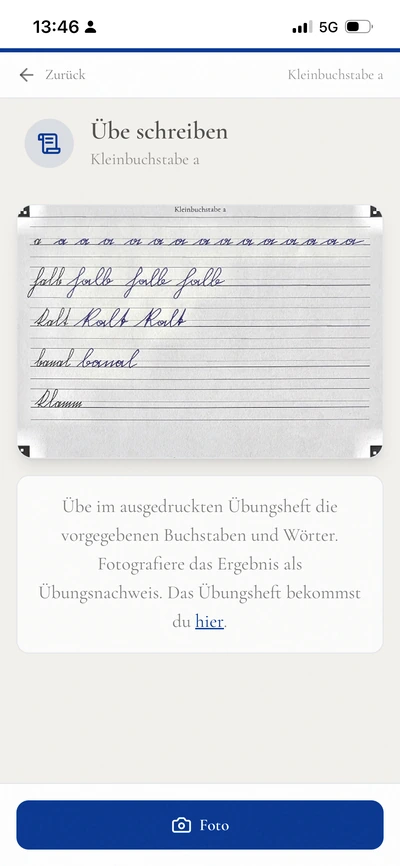 13:46 5G
Zurück Kleinbuchstabe a
Übe schreiben
Kleinbuchstabe a
Kleinbuchstabe a
a a a a a a a a a a a a a a
falb falb falb falb
Kalt Kalt Kalt
banal banal
Klamm
Übe im ausgedruckten Übungsheft die
vorgegebenen Buchstaben und Wörter.
Fotografiere das Ergebnis als
Übungsnachweis. Das Übungsheft bekommst
du hier.
Foto